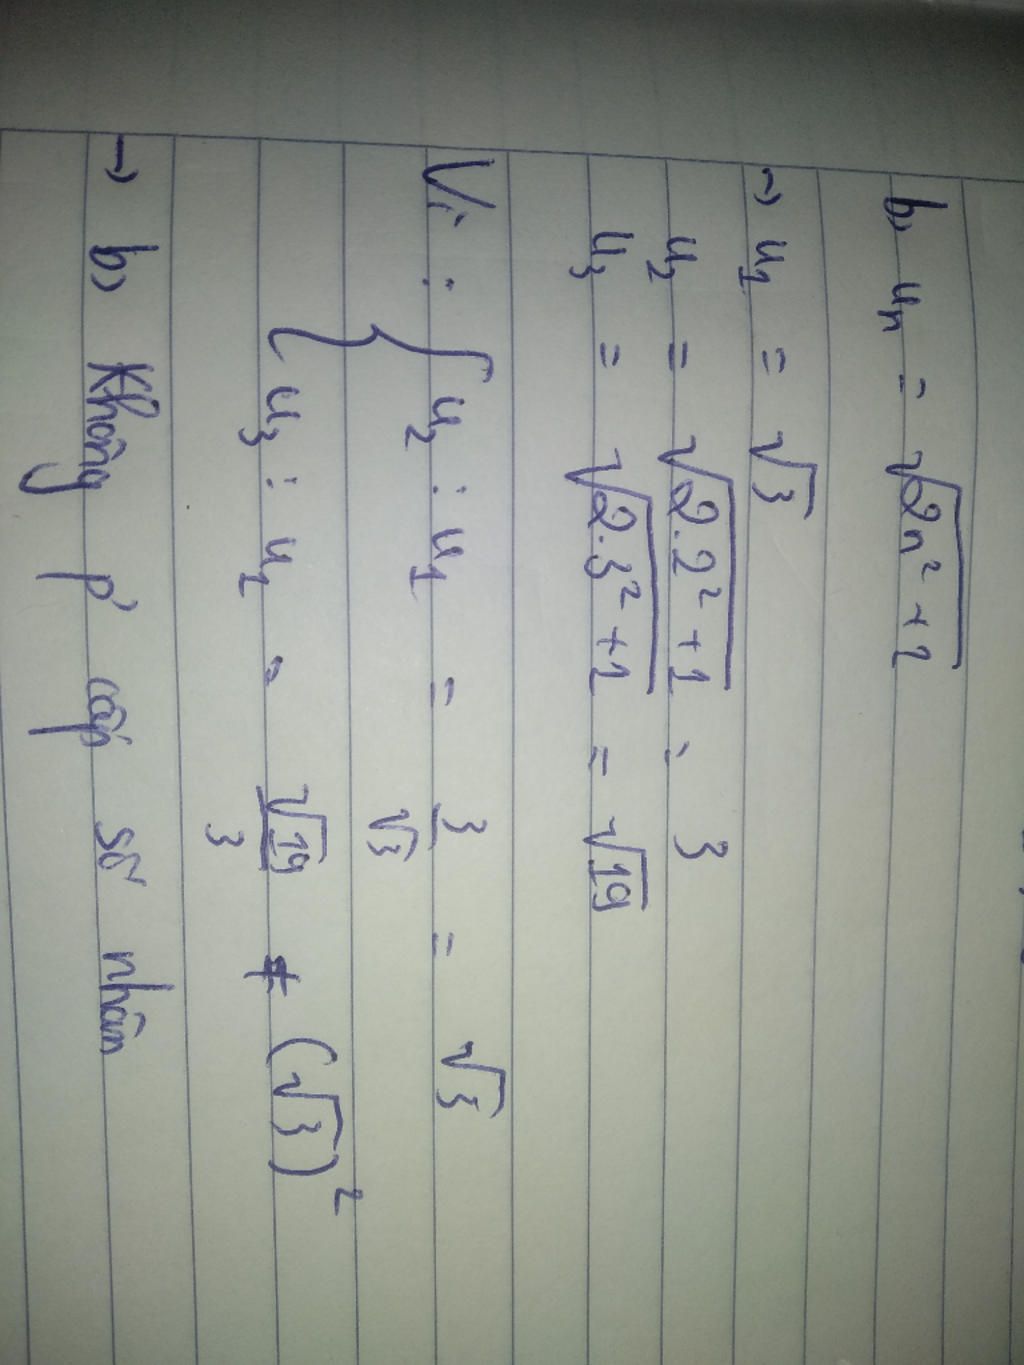 b) uₙ = √(2n² + 1)
→ u₁ = √3
u₂ = √(2.2² + 1) = 3
u₃ = √(2.3² + 1) = √19
Vì : { u₂ : u₁ = 3/√3 = √3
u₃ : u₁ = √19/3 ≠ (√3)²
→ b) Không p' cấp số nhân